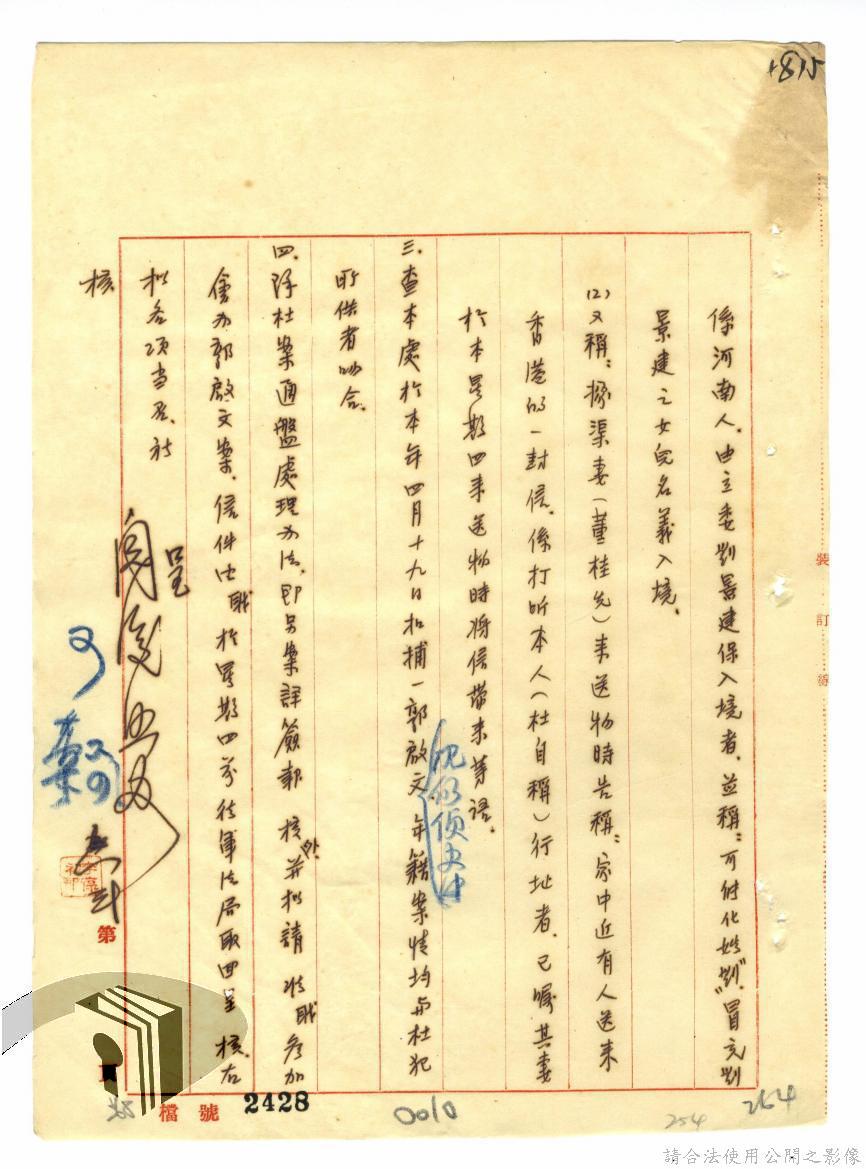 1815
係河南人．由立委劉景建保入境者．並稱：可能化姓"劉"．冒充劉
景建之女兒名義入境．
(2)又稱：據渠妻(董桂先)來送物時告稱：家中近有人送來
香港的一封信．係打听本人(杜自稱)行址者．已囑其妻
於本星期四來送物時將信帶來等語．
三．查本處於本年四月十九日扣捕一郭啟文 年籍案情均與杜犯
現仍偵办中
所供者吻合．
四．除杜案通盤處理办法．即另案詳簽報 核外．并拟請 准職參加
會办郭啟文案．信件由職於星期四前往軍法局取回呈 核．右
拟各項當否．祈
核
呈
可
第
頁
檔號
2428
0010
254
264
裝 訂 線
請合法使用公開之影像